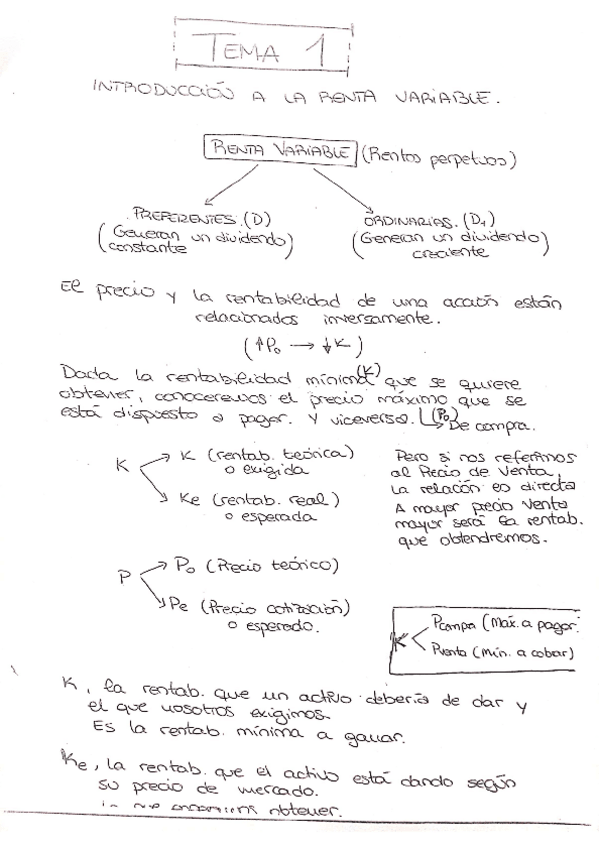 TEMA 1
INTRODUCCIÓN A LA RENTA VARIABLE.
RENTA VARIABLE (Rentas perpetuas)
PREFERENTES. (D)
(Generan un dividendo constante)
ORDINARIAS. (D1)
(Generan un dividendo creciente)
El precio y la rentabilidad de una acción están
relacionados inversamente.
(↑P0 → ↓K)
Dada la rentabilidad mínima (K) que se quiere
obtener, conoceremos el precio máximo que se
está dispuesto a pagar. y viceversa. (P0) → De compra.
K
K (rentab. teórica)
o exigida
Ke (rentab. real)
o esperada
Pero si nos referimos
al Precio de Venta,
la relación es directa
A mayor precio Venta
mayor será la rentab.
que obtendremos.
P
P0 (Precio teórico)
Pe (Precio cotización)
o esperado.
K
Pcompra (Máx. a pagar.
Pventa (Mín. a cobrar)
K, la rentab. que un activo debería de dar y
el que nosotros exigimos.
Es la rentab. mínima a ganar.
Ke, la rentab. que el activo está dando según
su precio de mercado.
obtener.